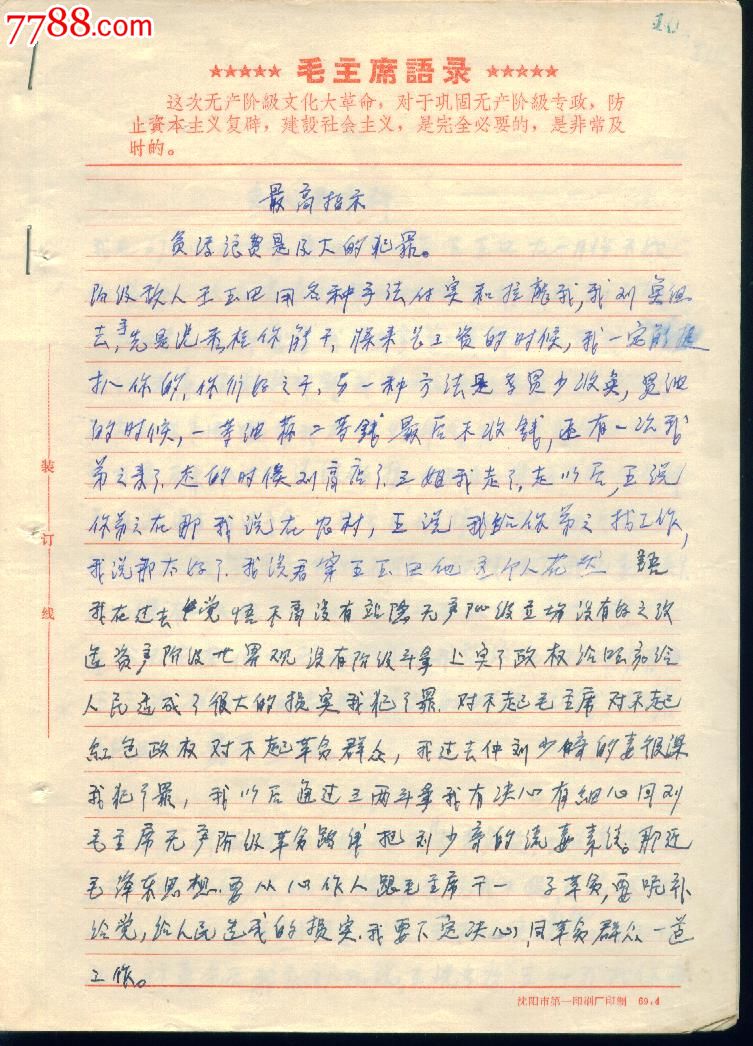 7788.com
★★★★★ 毛主席語录 ★★★★★
这次无产阶級文化大革命，对于巩固无产阶級专政，防
止資本主义复辟，建設社会主义，是完全必要的，是非常及
时的。
最高指示
贪污浪费是极大的犯罪。
阶级敌人王玉田用各种手法付实和拉龍我，我刘
去，先是说 你能干，将来长工资的时候，我一定能提
扒你的，你们好之干，另一种方法是多贸少收 ，买油
的时候，一等油 二等錢 最后不收錢，还有一次我
弟之来了．走的时候刘 店了．三姐我走了，走以后，王说
你弟之在那 我说 在农村，王说 我給你弟之找工作，
我说那太好了．我没看穿王玉田他这个人花 語
我在过去 觉悟不高没有站隐无产阶级立场 没有好之改
造资产阶级世界观 没有阶级斗争 上实了政权给国家给
人民造成了很大的损实我犯了罪．对不起毛主席 对不起
紅色政权 对不起革命群众，我过去仲刘少奇的毒很深
我犯了罪，我以后通过三两斗争我有决心有細心回刘
毛主席无产阶级革命路线 把刘少奇的流毒素清。那近
毛泽东思想．要从心作人跟毛主席干一 子革命，要呢补
给党，给人民造成的损实．我要下定决心，同革命群众一道
工作。
装
订
线
沈阳市第一印刷厂印制 69.4
7788.com